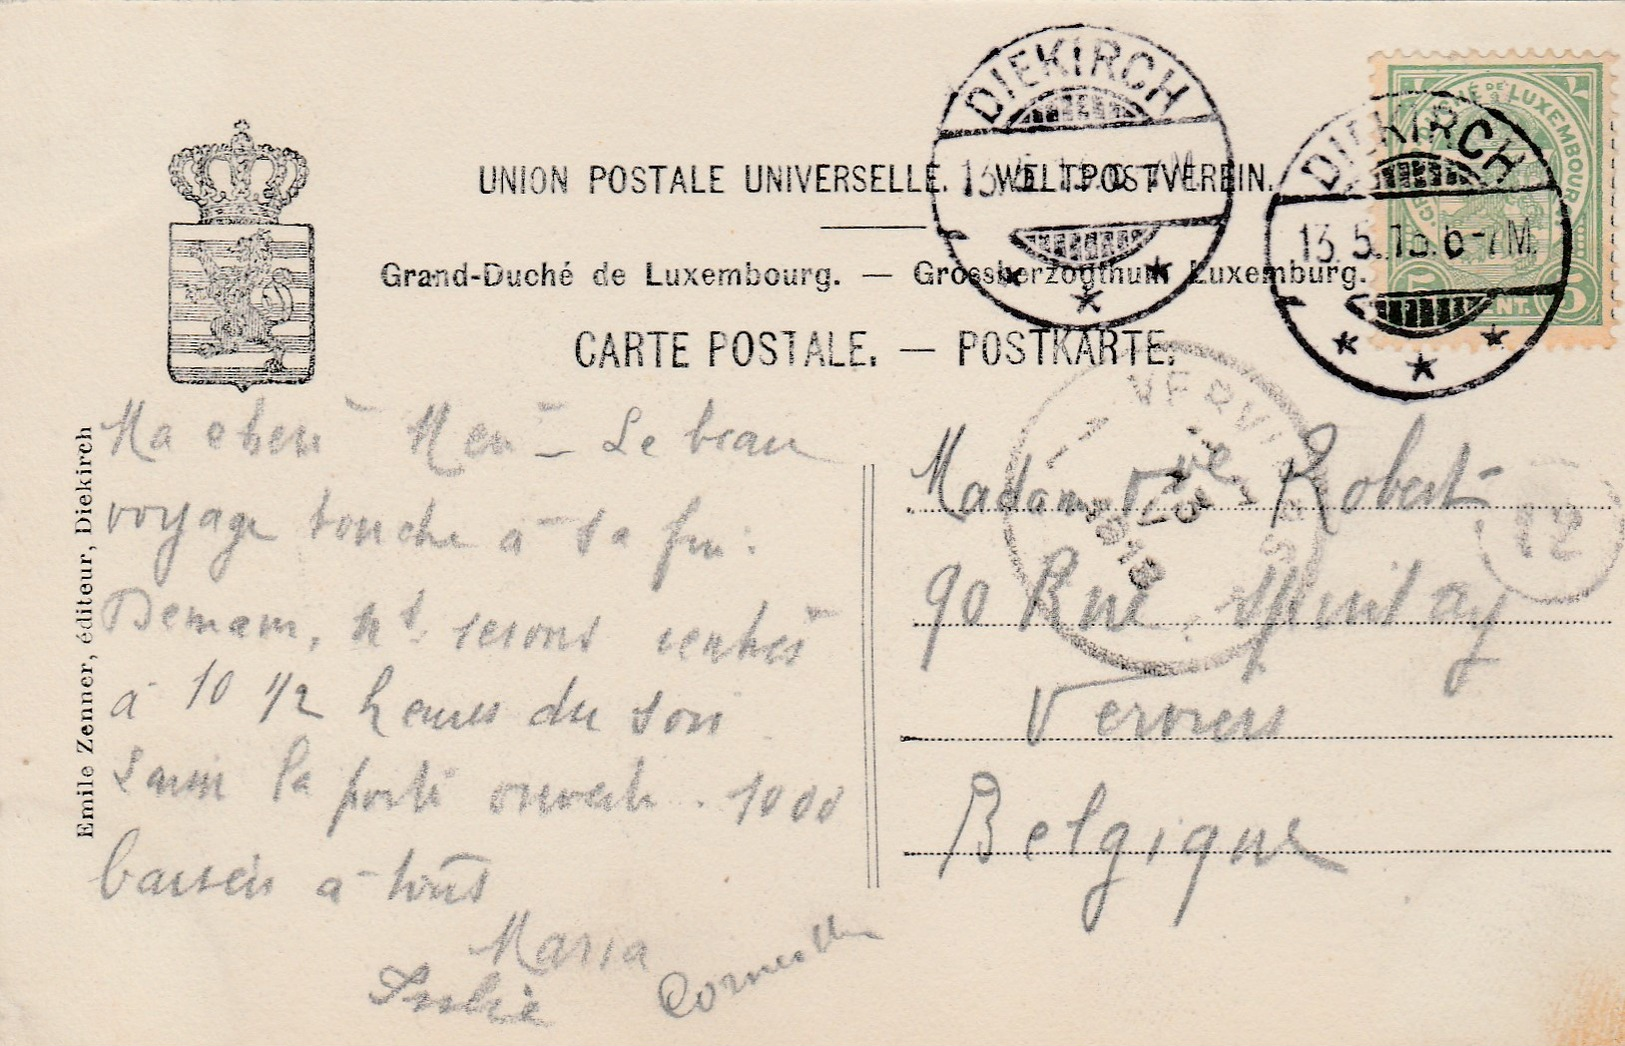 UNION POSTALE UNIVERSELLE. WELTPOSTVEREIN.
Grand-Duché de Luxembourg. — Grossherzogthum Luxemburg.
CARTE POSTALE. — POSTKARTE.
DIEKIRCH
DIEKIRCH
13.5.13.6-7M.
GR DUCHÉ DE LUXEMBOURG
5 CENT. 5
VERVIERS
1913
12
Emile Zenner, éditeur, Diekirch
Ma chère — Le beau
voyage touche à sa fin.
Demain, ns. serons rentrés
à 10 1/2 heures du soir
la porte ouverte. 1000
baisers à tous
Maria
Corneille
Madame Vve Robert
90 Rue
Verviers
Belgique